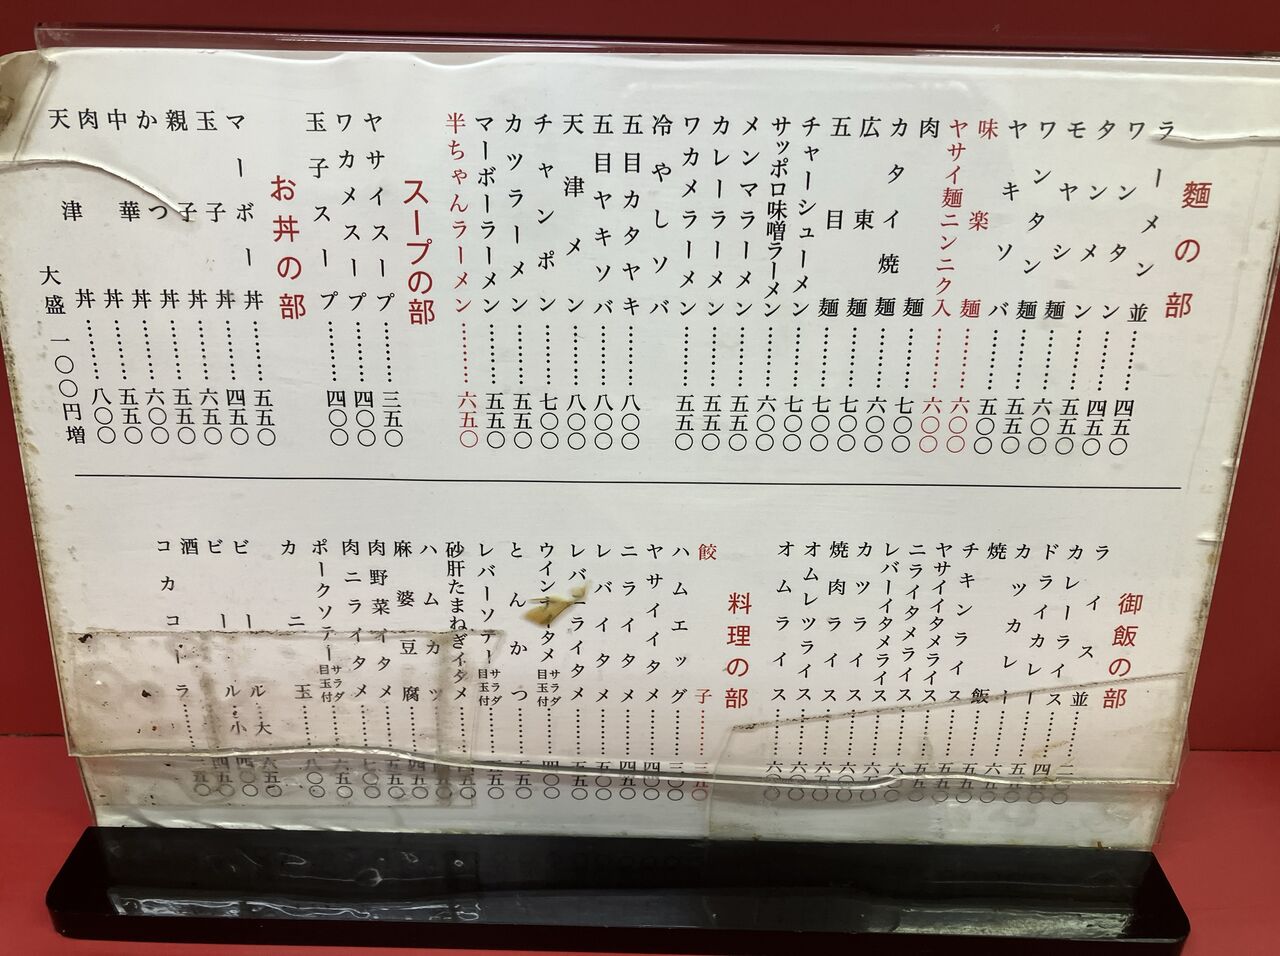 麺の部
ラーメン並………四五〇
ワンタン………四五〇
タンメン………五五〇
モヤシ麺………六〇〇
ワンタン麺………五五〇
ヤキソバ………五〇〇
味楽麺………六〇〇
ヤサイ麺ニンニク入………六〇〇
肉麺………七〇〇
カタイ焼麺………六〇〇
広東麺………七〇〇
五目麺………七〇〇
チャーシューメン………七〇〇
サッポロ味噌ラーメン………六〇〇
メンマラーメン………五五〇
カレーラーメン………五五〇
ワカメラーメン………五五〇
冷やしソバ
五目カタヤキ………八〇〇
五目ヤキソバ………八〇〇
天津メン………八〇〇
チャンポン………七〇〇
カツラーメン………五五〇
マーボーラーメン………五五〇
半ちゃんラーメン………六五〇
スープの部
ヤサイスープ………三五〇
ワカメスープ………四〇〇
玉子スープ………四〇〇
お丼の部
マーボー丼………五五〇
玉子丼………四五〇
親子丼………六五〇
かつ丼………五五〇
中華丼………六〇〇
肉丼………五五〇
天津丼………八〇〇
大盛一〇〇円増
御飯の部
ライス並………
カレーライス………
ドライカレー………
カツカレー………
焼飯………
チキンライス………
ヤサイイタメライス………
ニライタメライス………
レバーイタメライス………
カツライス………
焼肉ライス………
オムレツライス………
オムライス………
料理の部
餃子………三五〇
ハムエッグ………三〇〇
ヤサイイタメ………四〇〇
ニライタメ………四五〇
レバイタメ………五〇〇
レバニライタメ………五五〇
ウインナ タメ サラダ目玉付………四〇〇
とんかつ………
レバーソテー サラダ目玉付………
砂肝たまねぎイタメ………
ハムカツ………
麻婆豆腐………五五〇
肉野菜イタメ………七〇〇
肉ニライタメ………六五〇
ポークソテー サラダ目玉付………
カニ玉………
ビール大………
ビール小………
酒………
コカコーラ………